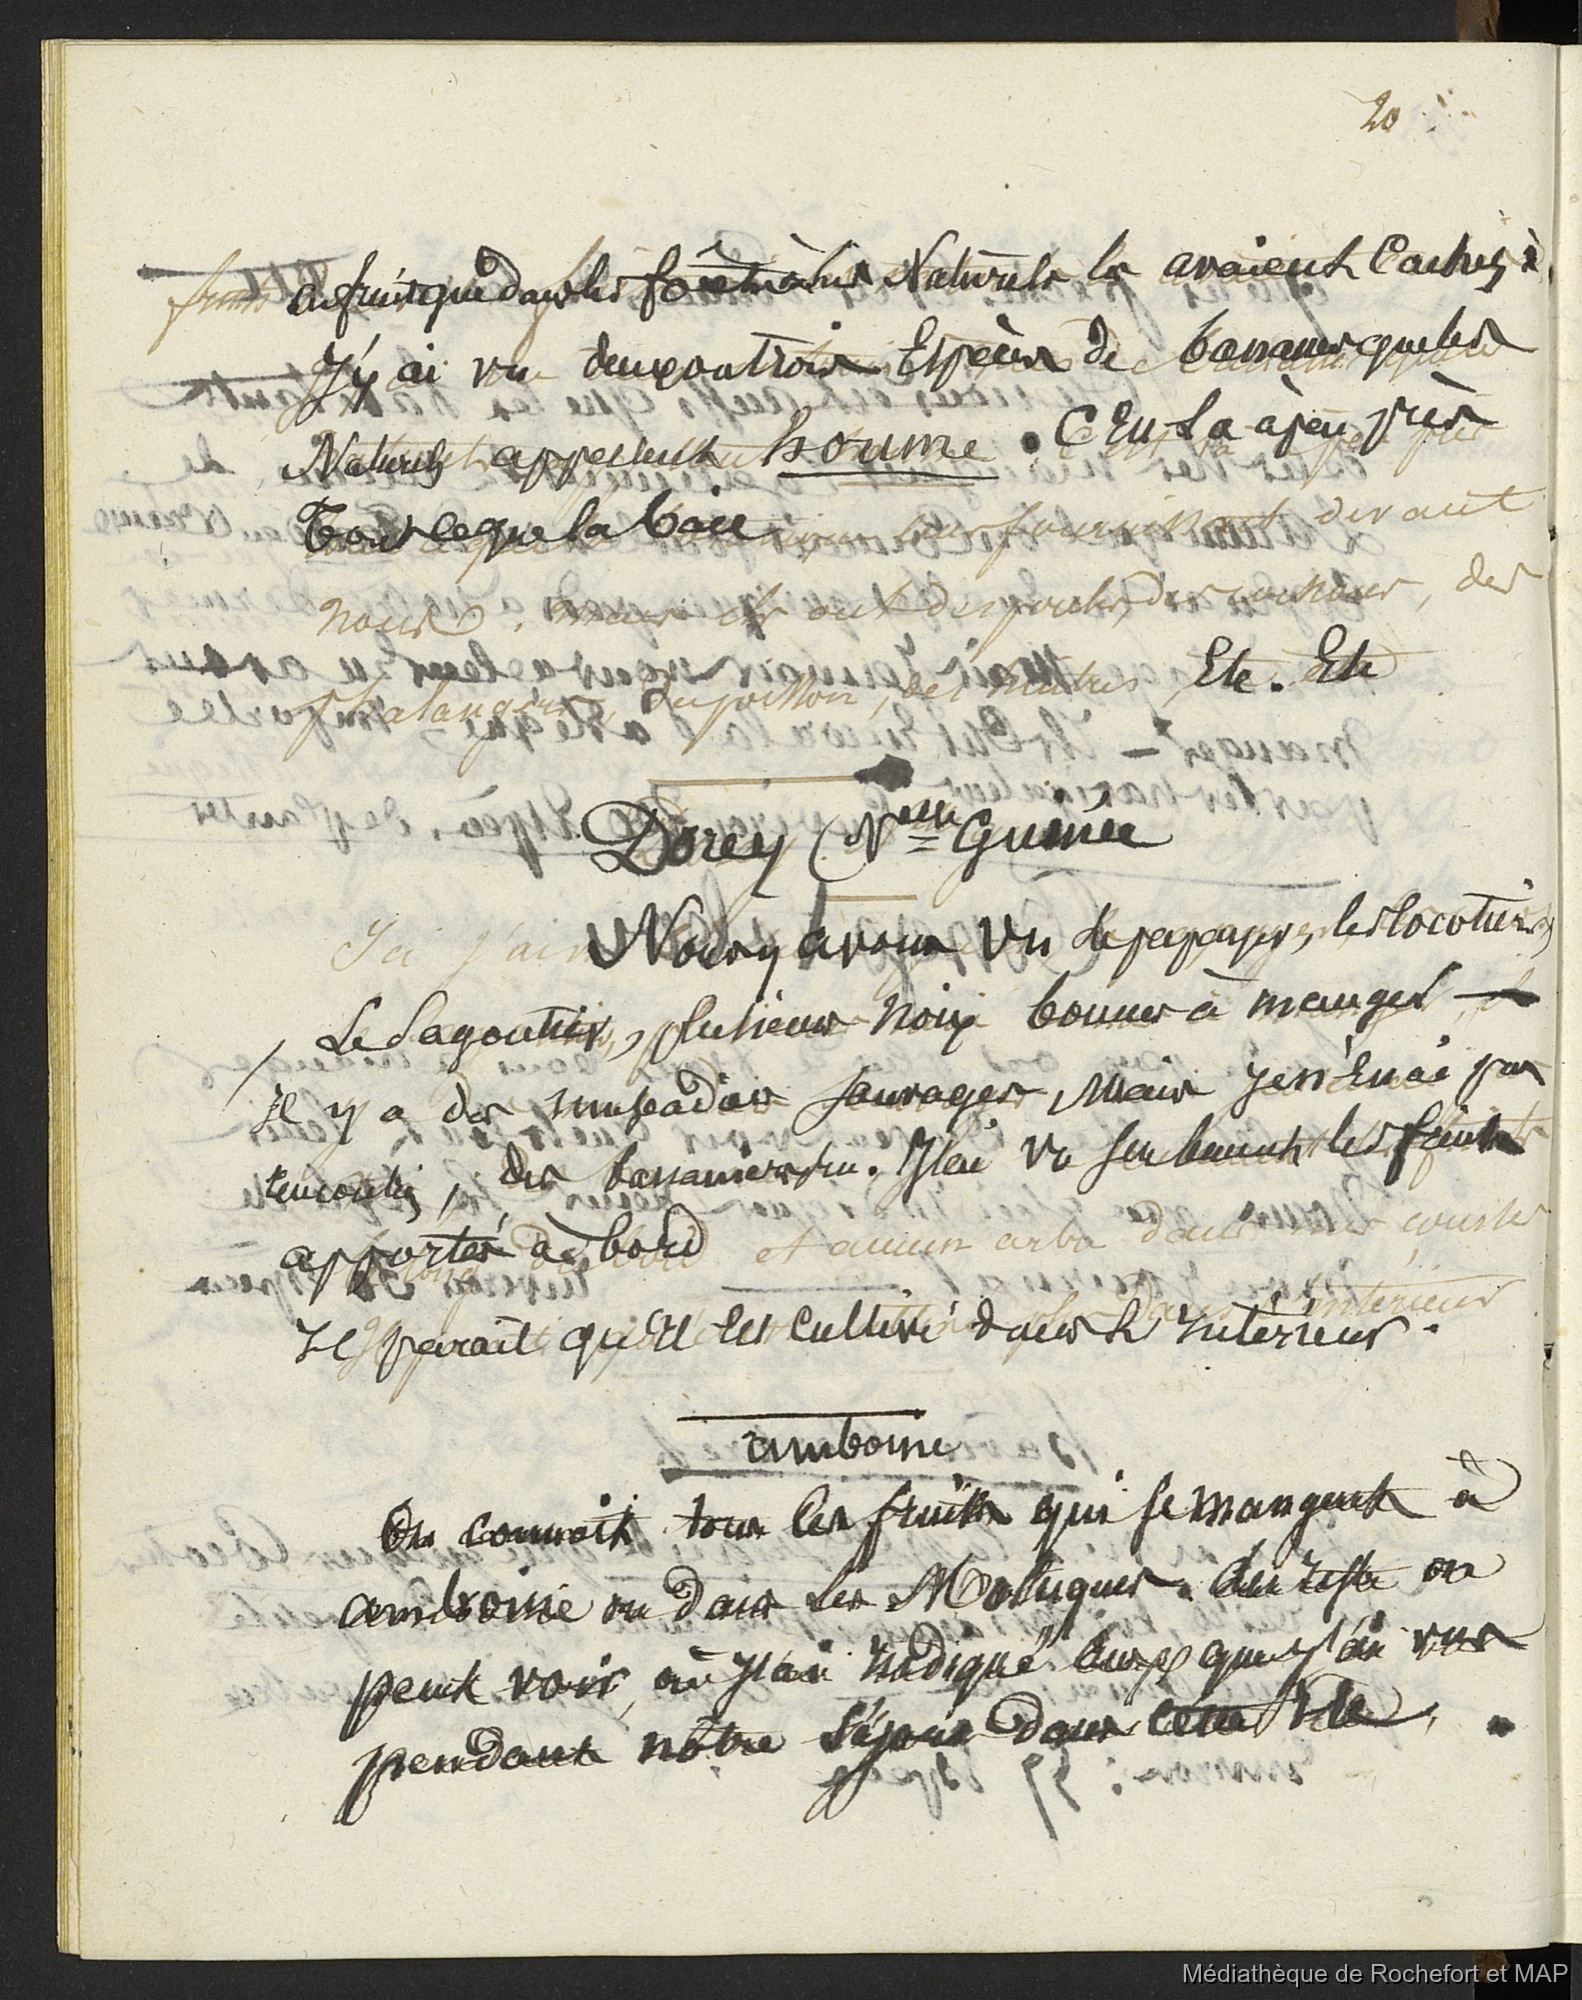 20
fruits ce fruit que dans les forêts où les Naturels les avaient Cachés
J'y ai vu deux ou trois Espèces de bananes que les
Naturels appellent houme. C'Est la à peu près
Tout ce que la baie fournissant devant
nous, mais ils ont des poules, des cochons, des
phalangers, du poisson, des Etc. Etc
Dorey (Nelle Guinée
Ici j'ai Nous y avons Vu Le papayer, les Cocotiers,
Le Sagoutier, plusieurs Noix bonnes à manger et
Il y a des sauvages, Mais Je n'En ai pas
rencontrés, des bananiers. J'en ai Vu seulement les fruits
apportés à bord et aucun arbre dans mes courses
Il paraît qu'Il Est Cultivé dans l'Intérieur.
amboine
On connoit tous les fruits qui se mangent à
amboine ou Dans Les Moluques. Au reste on
peut voir, où J'ai Indiqué Ceux que J'ai vus
pendant nôtre Séjour Dans Cette Ile.
Médiathèque de Rochefort et MAP